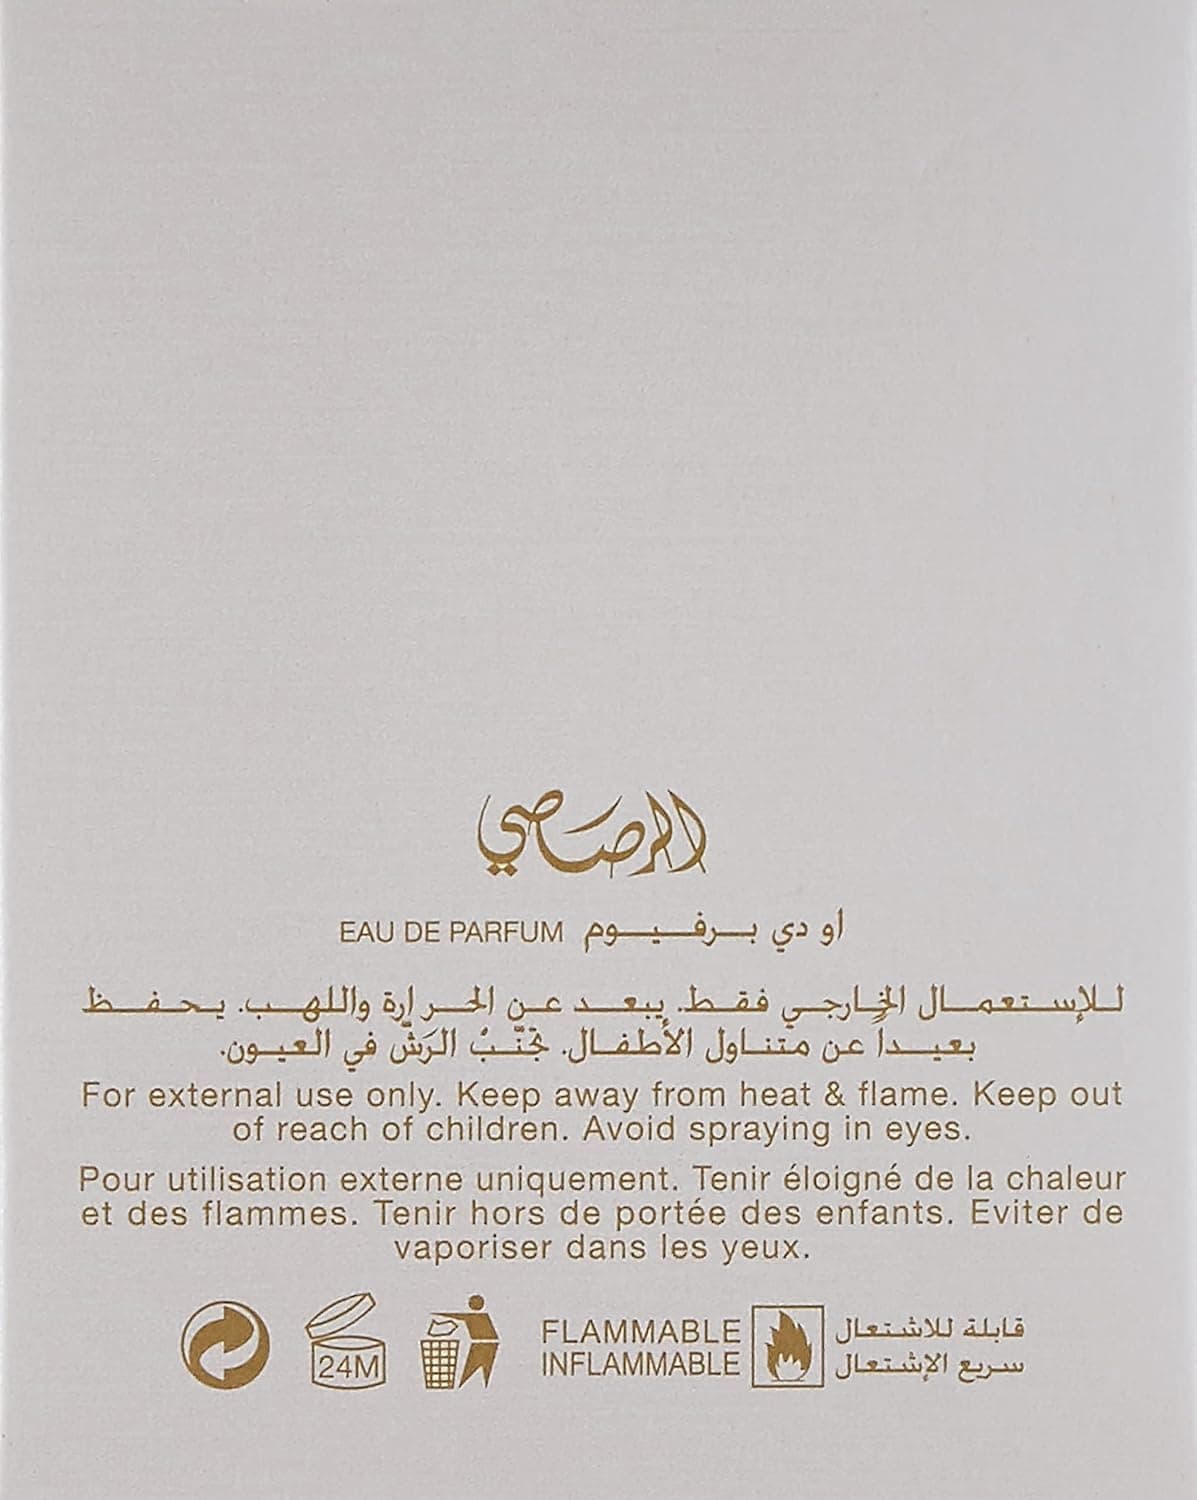 الرصاصي
EAU DE PARFUM او دي برفيوم
للإستعمال الخارجي فقط. يبعد عن الحرارة واللهب. يحفظ
بعيداً عن متناول الأطفال. تجنّبُ الرَشّ في العيون.
For external use only. Keep away from heat & flame. Keep out
of reach of children. Avoid spraying in eyes.
Pour utilisation externe uniquement. Tenir éloigné de la chaleur
et des flammes. Tenir hors de portée des enfants. Eviter de
vaporiser dans les yeux.
24M
FLAMMABLE قابلة للاشتعال
INFLAMMABLE سريع الإشتعال